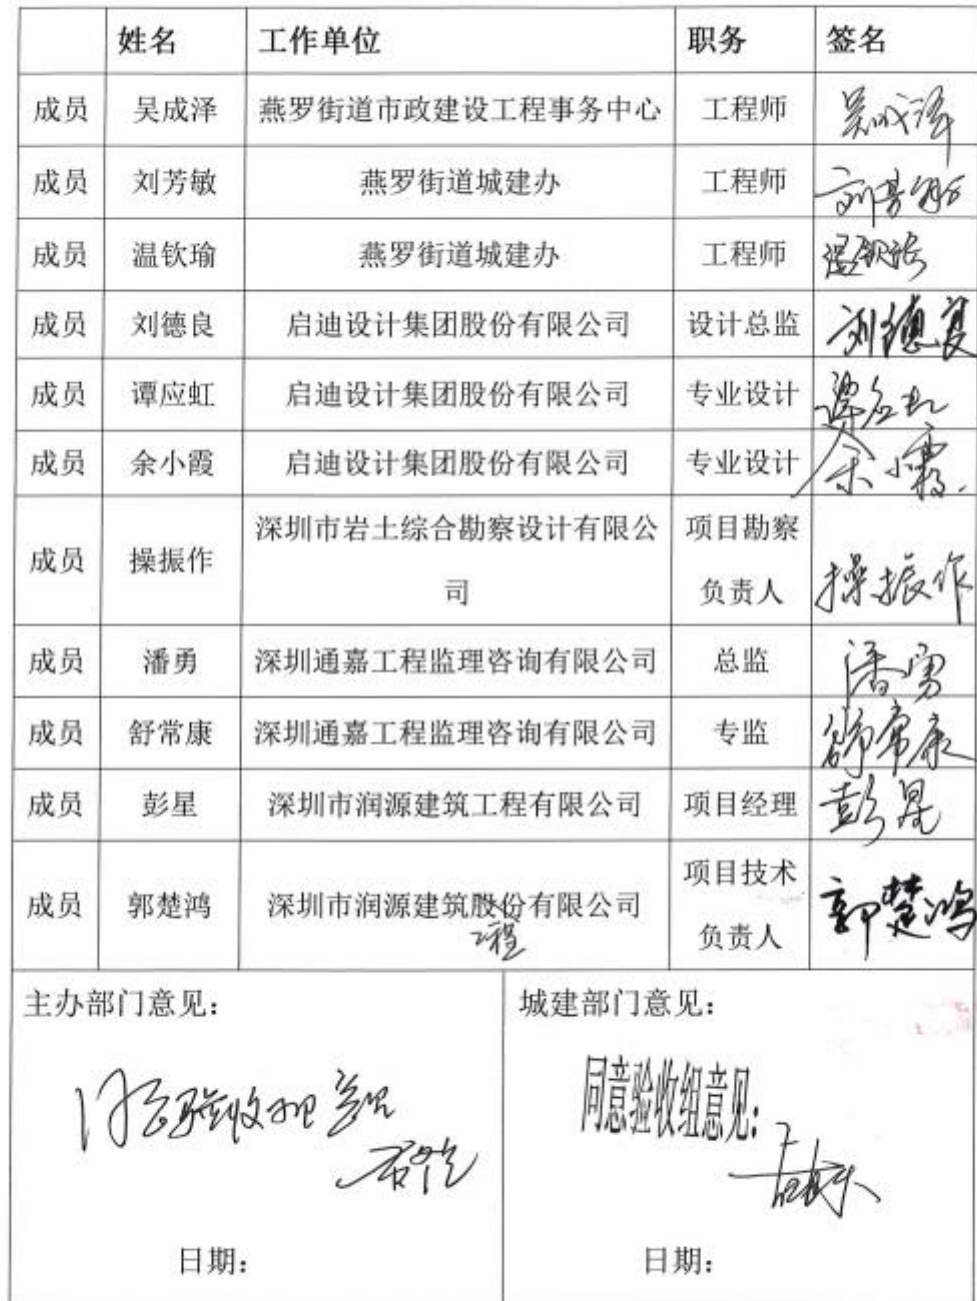 姓名 工作单位 职务 签名
成员 吴成泽 燕罗街道市政建设工程事务中心 工程师 吴成泽
成员 刘芳敏 燕罗街道城建办 工程师 刘芳敏
成员 温钦瑜 燕罗街道城建办 工程师 温钦瑜
成员 刘德良 启迪设计集团股份有限公司 设计总监 刘德良
成员 谭应虹 启迪设计集团股份有限公司 专业设计
成员 余小霞 启迪设计集团股份有限公司 专业设计 余小霞
深圳市岩土综合勘察设计有限公 项目勘察
成员 操振作 操振作
司 负责人
成员 潘勇 深圳通嘉工程监理咨询有限公司 总监 潘勇
成员 舒常康 深圳通嘉工程监理咨询有限公司 专监 舒常康
成员 彭星 深圳市润源建筑工程有限公司 项目经理 彭星
项目技术
成员 郭楚鸿 深圳市润源建筑股份有限公司 郭楚鸿
工程 负责人
主办部门意见： 城建部门意见：
同意验收组意见 同意验收组意见：
日期： 日期：